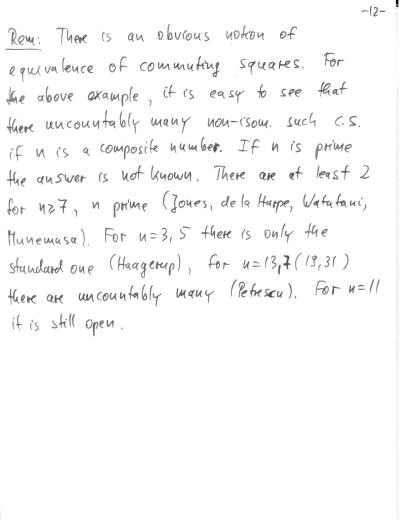 -12-
Rem: There is an obvious notion of
equivalence of commuting squares. For
the above example, it is easy to see that
there uncountably many non-isom. such c.s.
if n is a composite number. If n is prime
the answer is not known. There are at least 2
for n≥7, n prime (Jones, de la Harpe, Watatani,
Munemasa). For n=3,5 there is only the
standard one (Haagerup), for n=13,7(19,31)
there are uncountably many (Petrescu). For n=11
it is still open.